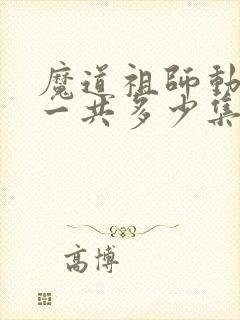 魔道祖師動
一共多少集
高博